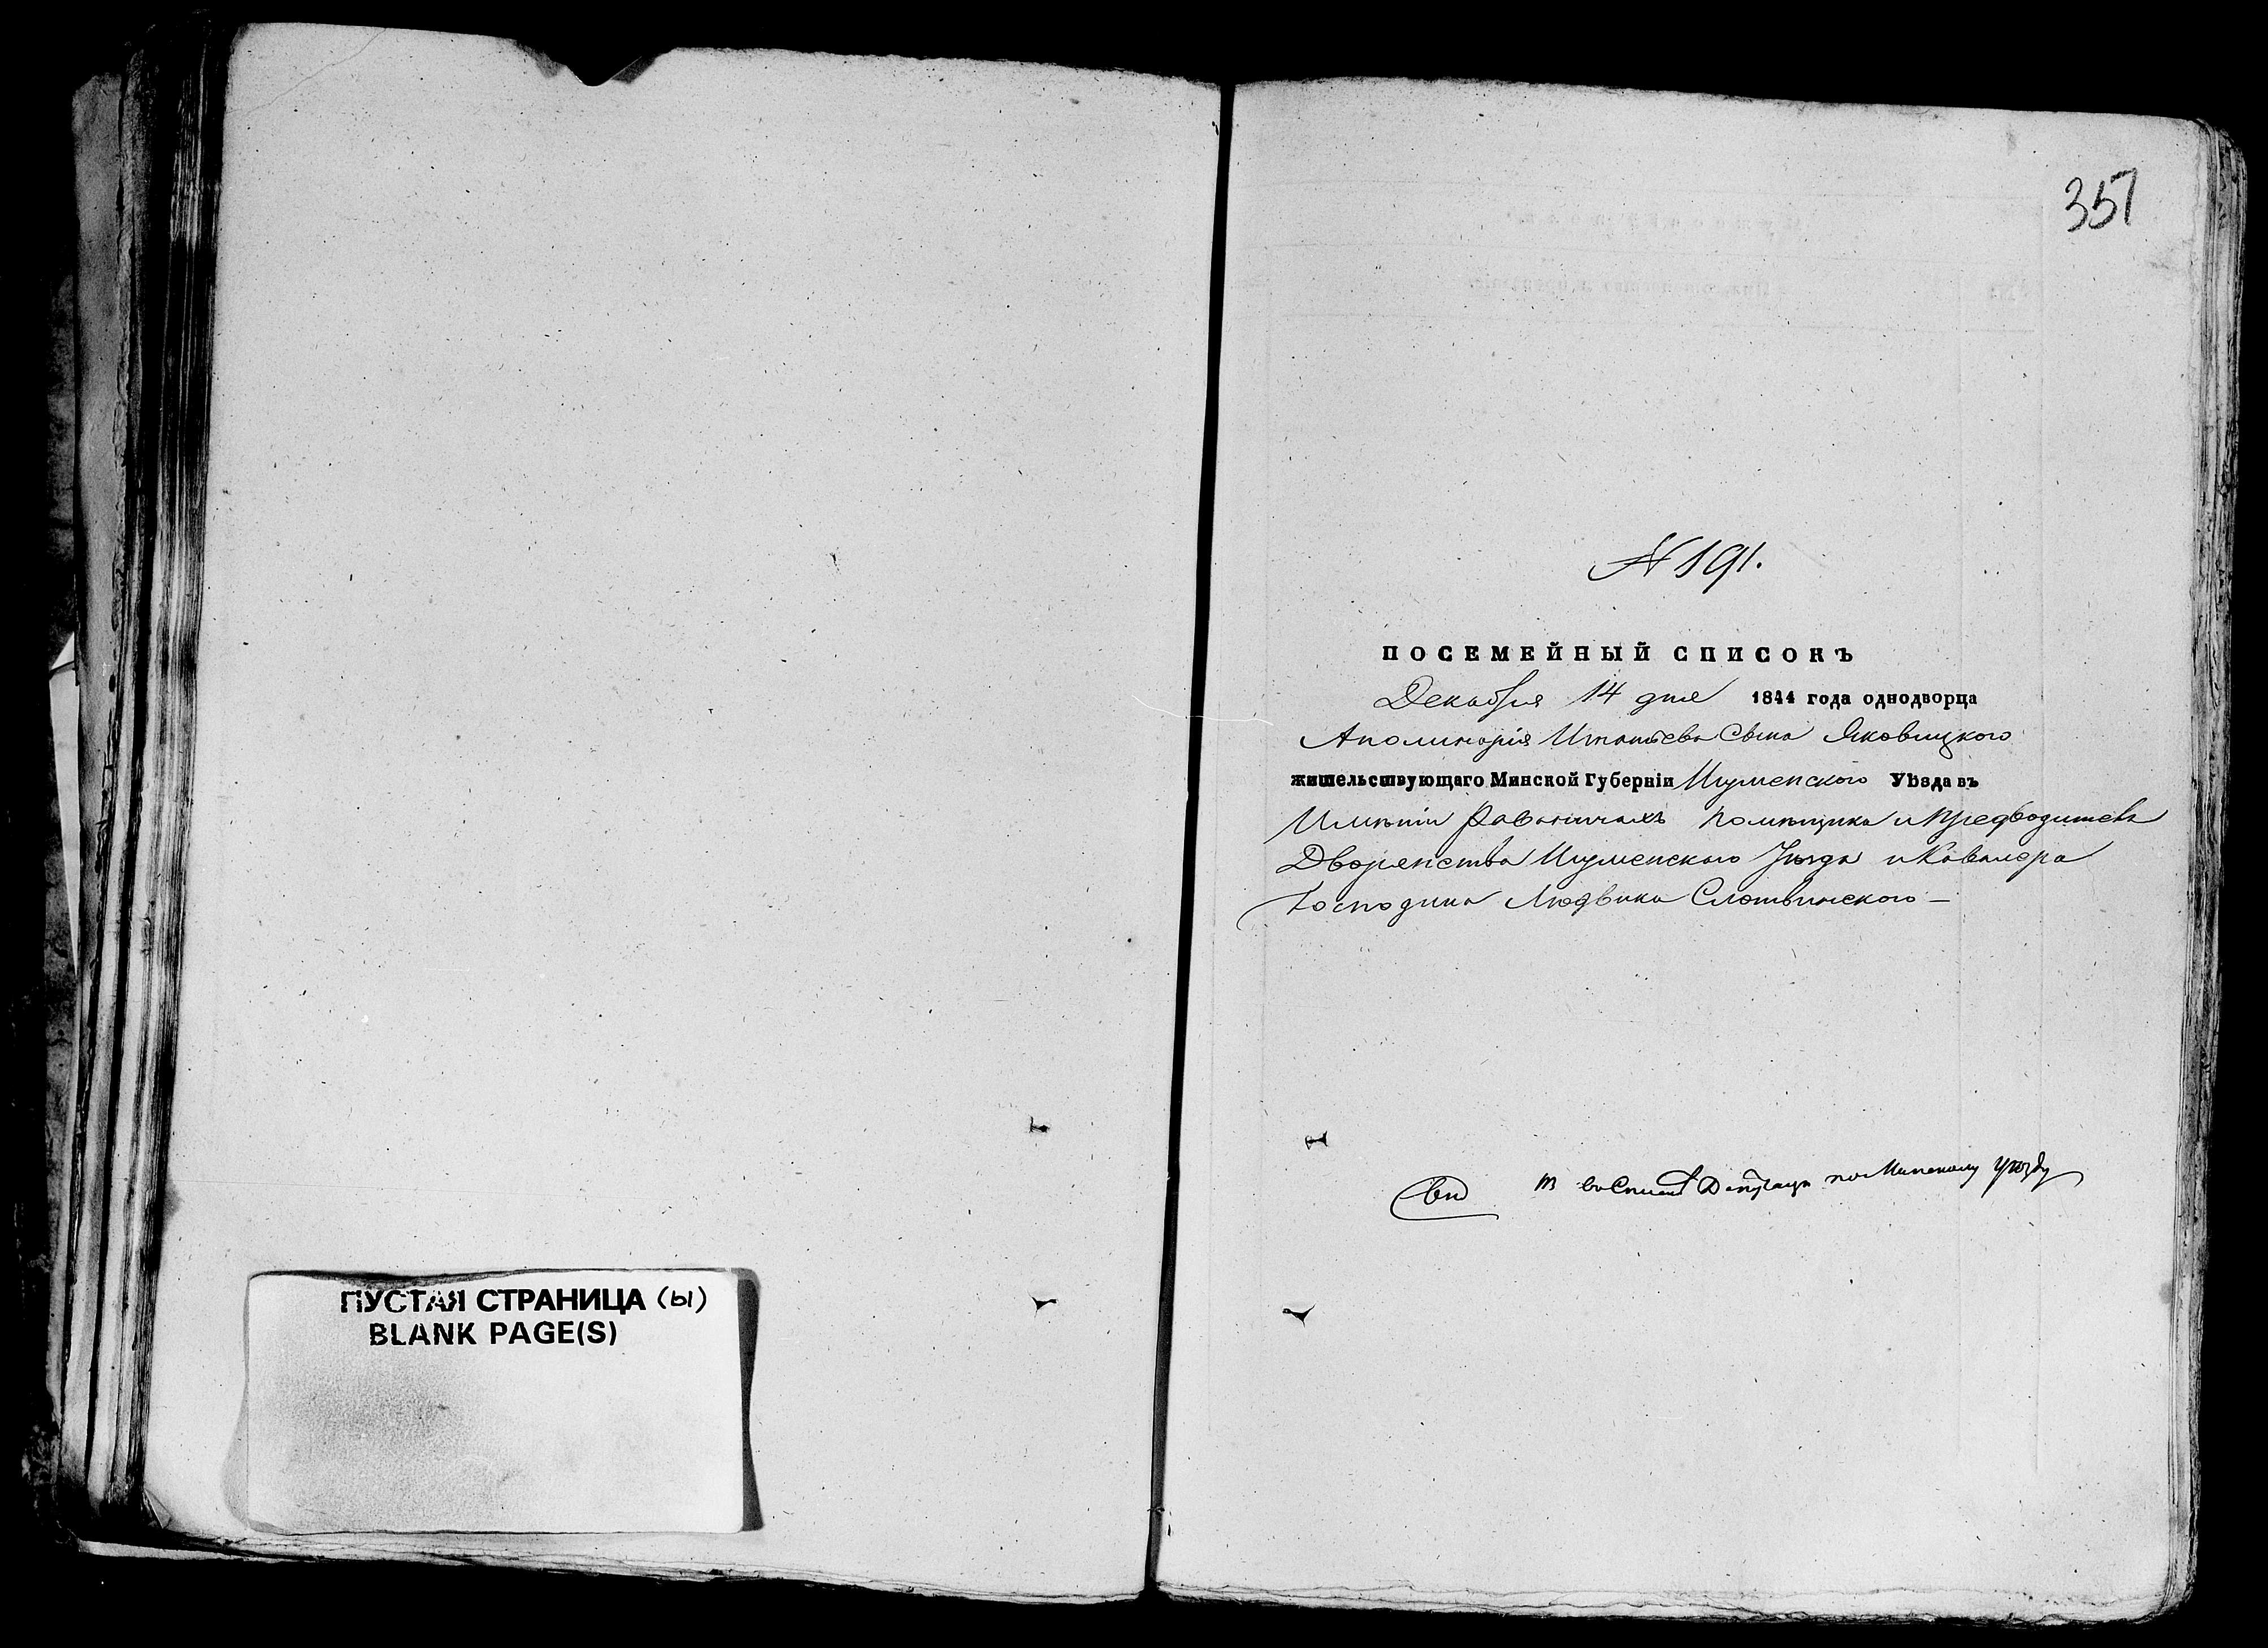 ПУСТАЯ СТРАНИЦА (ы)
BLANK PAGE(S)
357
№ 191.
ПОСЕМЕЙНЫЙ СПИСОКЪ
Декабря 14 дня 1844 года однодворца
Аполинарія Игнатьева Сына Яковицкого
жительствующаго Минской Губерніи Игуменского Уѣзда въ
Имѣніи Раваничахъ Помѣщика и Предводителя
Дворянства Игуменского Уѣзда и Кавалера
Господина Людвика Слотвинского —
по Минскому уѣзду